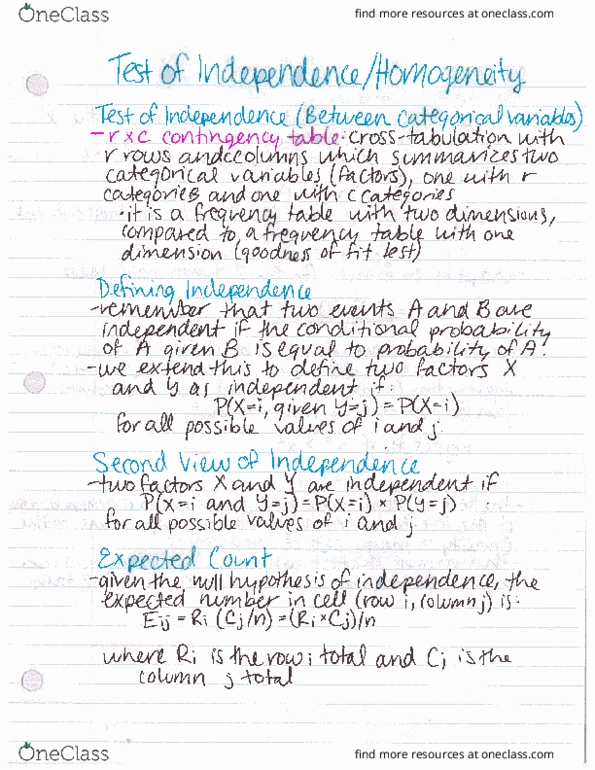 OneClass
find more resources at oneclass.com
Test of Independence/Homogeneity
Test of Independence (Between categorical variables)
- r x c contingency table: cross-tabulation with
r rows and c columns which summarizes two
categorical variables (factors), one with r
categories and one with c categories
· it is a frequency table with two dimensions,
compared to a frequency table with one
dimension (goodness of fit test)
Defining Independence
- remember that two events A and B are
independent if the conditional probability
of A given B is equal to probability of A!
- we extend this to define two factors X
and Y as independent if:
P(X=i, given Y=j) = P(X=i)
for all possible values of i and j.
Second View of Independence
- two factors X and Y are independent if
P(X=i and Y=j) = P(X=i) × P(Y=j)
for all possible values of i and j.
Expected Count
- given the null hypothesis of independence, the
expected number in cell (row i, column j) is:
Eij = Ri (Cj/n) = (Ri × Cj)/n
where Ri is the row i total and Cj is the
column j total
OneClass
find more resources at oneclass.com